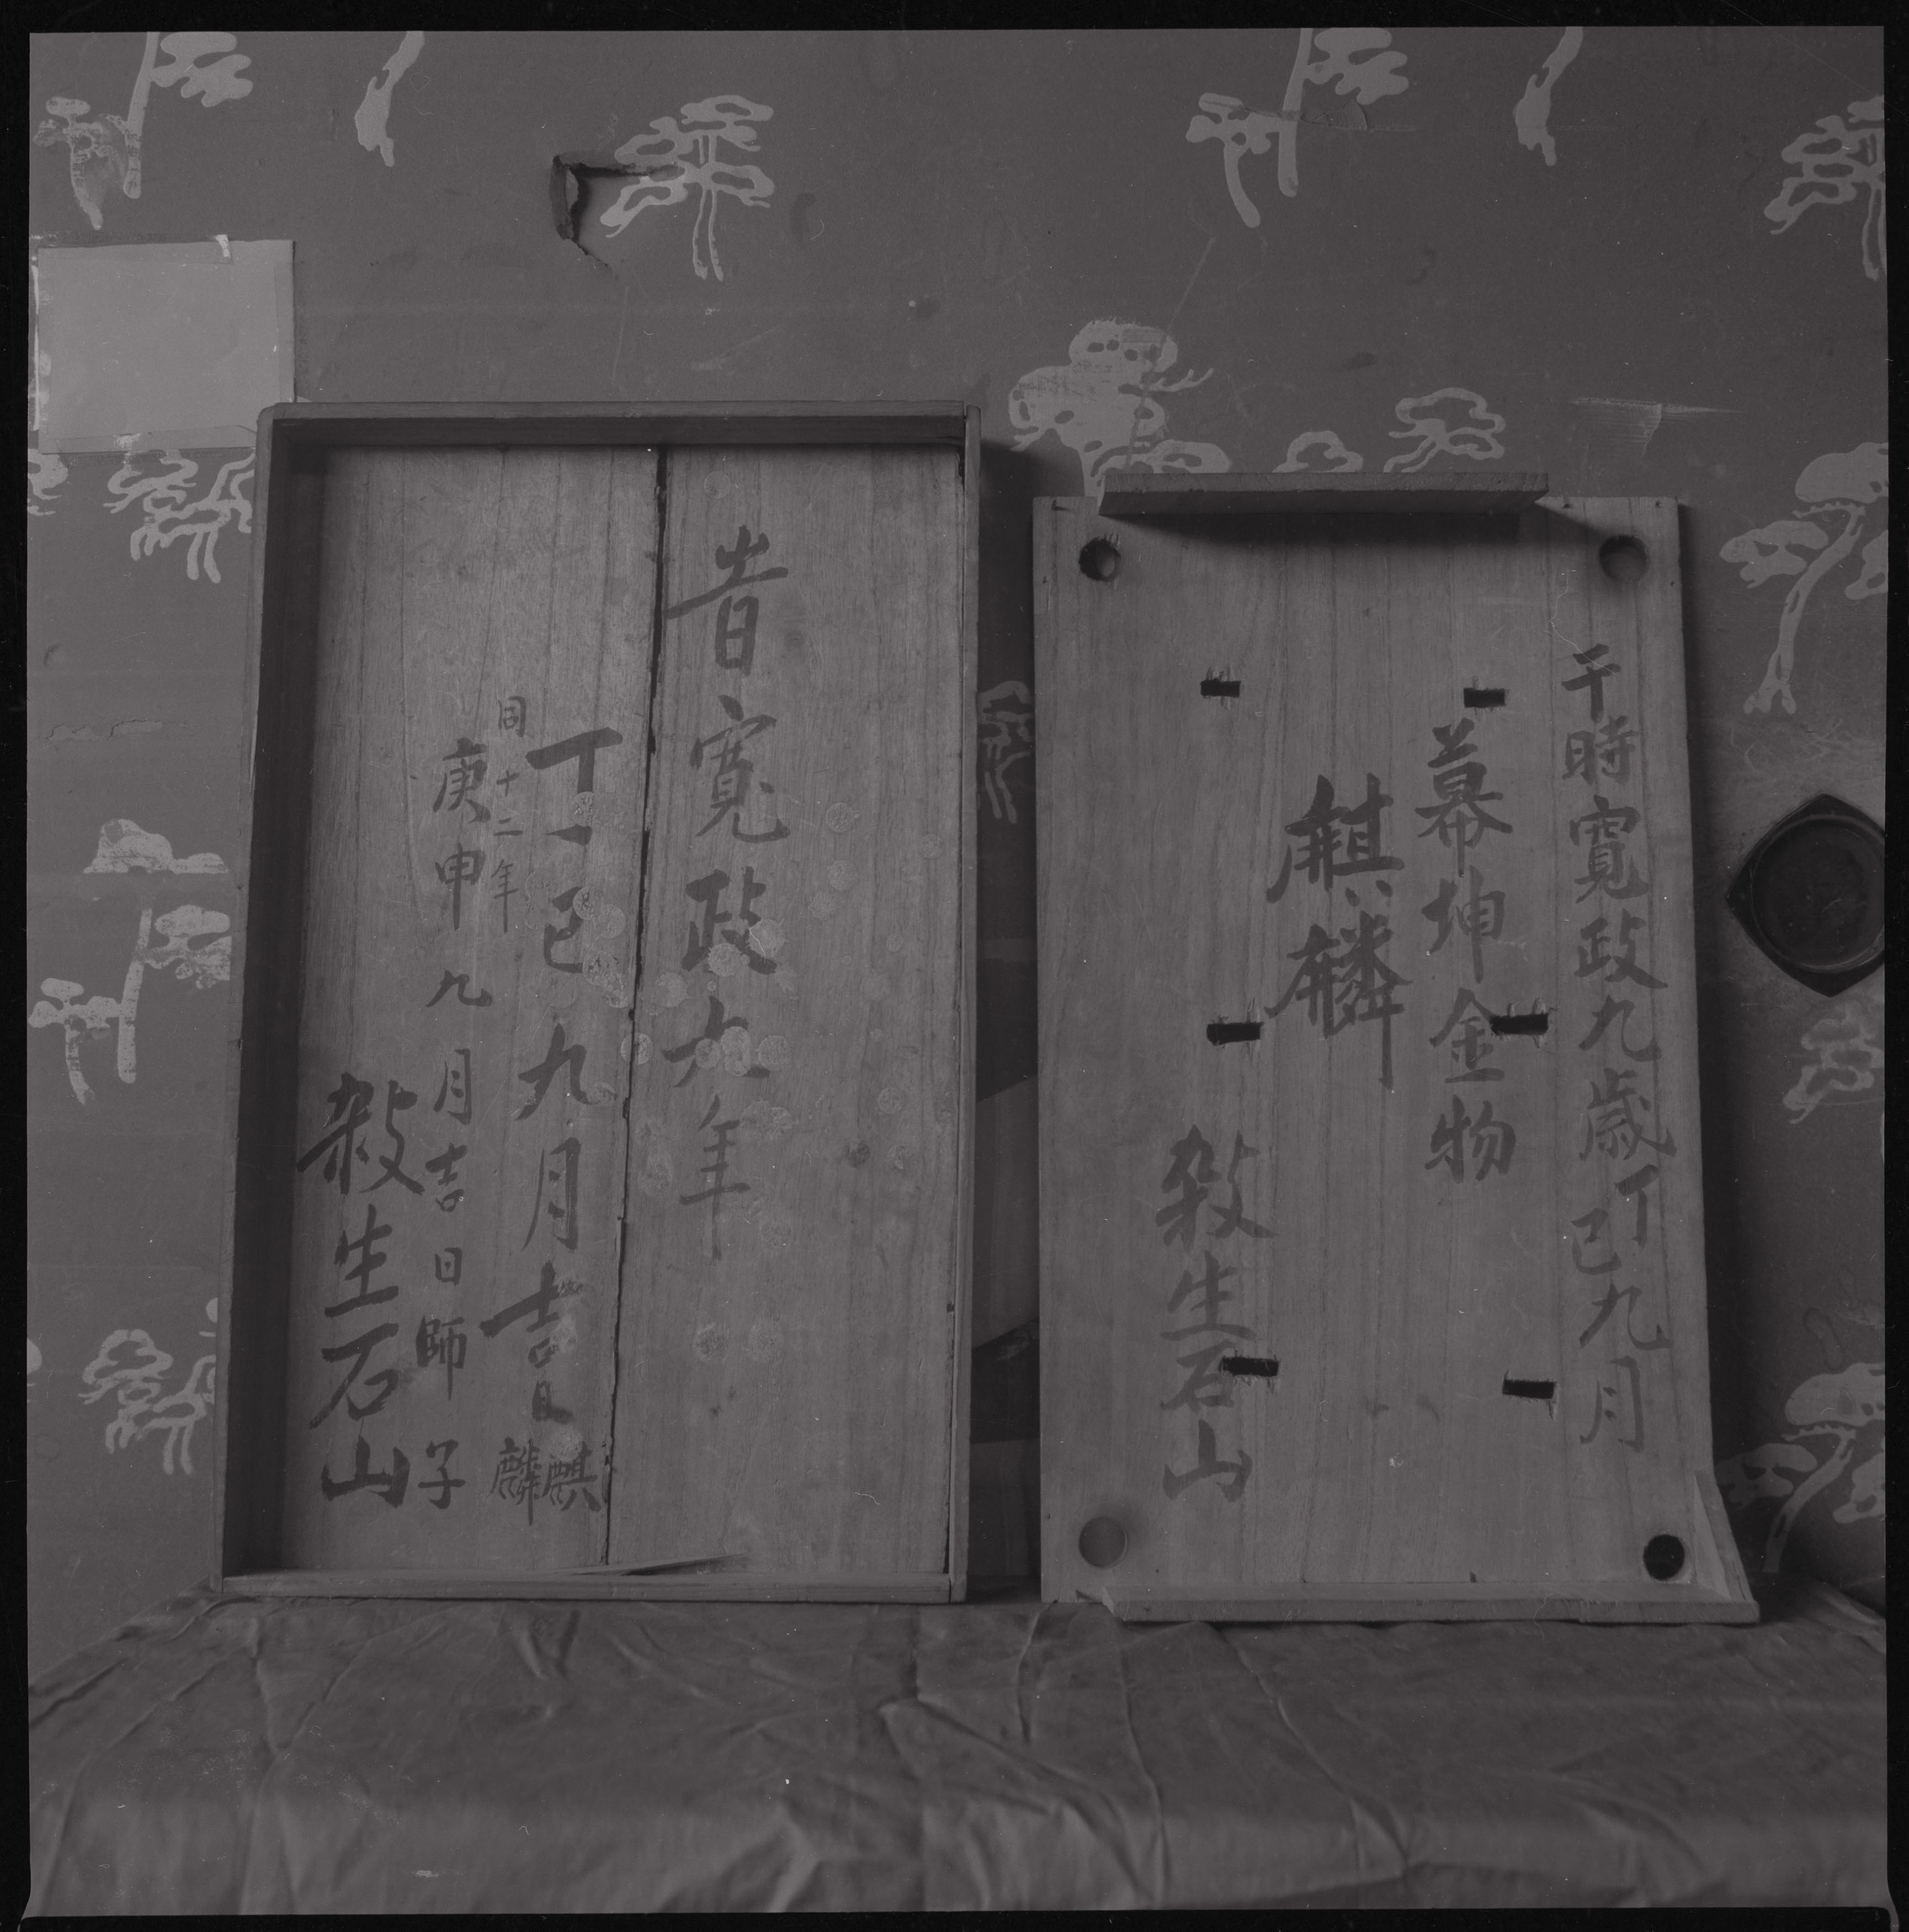 于時寛政九歳丁巳九月
幕坤金物
麒麟
殺生石山
旹寛政六年
丁巳九月吉日麒麟
同十二年
庚申九月吉日師子
殺生石山